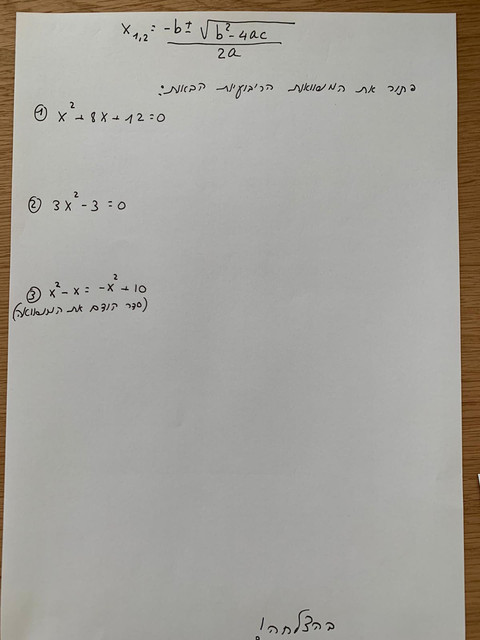 x₁,₂ = -b ± √b² - 4ac / 2a
פתור את המשוואות הריבועיות הבאות:
① x² + 8x + 12 = 0
② 3x² - 3 = 0
③ x² - x = -x² + 10
(סדר קודם את המשוואה)
בהצלחה!